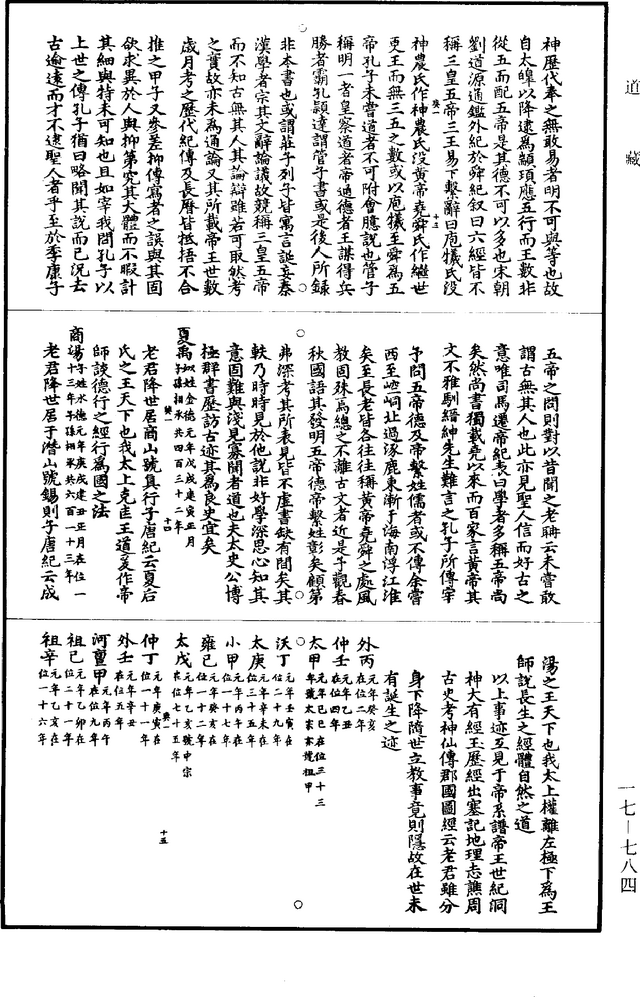 道藏
神歷代奉之無敢易者明不可與等也故
自太皥以降逮為顓頊應五行而王數非
從五而配五帝是其德不可以多也宋朝
劉道源通鑑外紀於舜紀叙曰六經皆不
稱三皇五帝三王易下繫辭曰庖犧氏沒
神農氏作神農氏沒黃帝堯舜氏作繼世
更王而無三五之數或以庖犧至舜為五
帝孔子未嘗道者不可附會臆說也管子
稱明一者皇察道者帝通德者王謀得兵
勝者霸孔穎達謂管子書或是後人所錄
非本書也或謂莊子列子皆寓言誕妄秦
漢學者宗其文辭論議故競稱三皇五帝
而不知古無其人其論辯雖若可取然考
之實故亦未為通論又其所載帝王世數
歲月考之歷代紀傳及長曆皆抵捂不合
推之甲子又參差抑傳寫者之誤與其固
欲求異於人與抑第究其大體而不暇計
其細與特未可知也且如宰我問孔子以
上世之傳孔子猶曰略聞其說而已況去
古逾遠而才不逮聖人者乎至於季康子
五帝之問則對以昔聞之老聃云未嘗敢
謂古無其人也此亦見聖人信而好古之
意唯司馬遷帝紀表曰學者多稱五帝尚
矣然尚書獨載堯以來而百家言黃帝其
文不雅馴縉紳先生難言之孔子所傳宰
予問五帝德及帝繫姓儒者或不傳余嘗
西至崆峒北過涿鹿東漸于海南浮江淮
矣至長老皆各往往稱黃帝堯舜之處風
教固殊焉總之不離古文者近是予觀春
秋國語其發明五帝德帝繫姓彰矣顧第
弗深考其所表見皆不虛書缺有間矣其
軼乃時時見於他說非好學深思心知其
意固難與淺見寡聞者道也夫太史公博
極群書歷訪古迹其為良史宜矣
夏禹姒姓金德元年戊戌建寅正月子孫相承共四百三十二年
老君降世居商山號真行子唐紀云夏后
氏之王天下也我太上克匡王道爰作帝
師談德行之經行為國之法
商湯子姓水德元年庚戌建丑正月在位一十三年子孫相承共六百一十三年
老君降世居于潛山號錫則子唐紀云成
湯之王天下也我太上權離左極下為王
師說長生之經體自然之道
以上事迹互見于帝系譜帝王世紀洞
神大有經玉歷經出塞記地理志譙周
古史考神仙傳郡國圖經云老君雖分
身下降隨世立教事竟則隱故在世未
有誕生之迹
外丙元年癸亥在位二年
仲壬元年乙丑在位四年
太甲元年己巳在位三十三年號太宗亦號祖甲
沃丁元年壬寅在位二十九年
太庚元年辛未在位二十五年
小甲元年丙申在位一十七年
雍己元年癸丑在位一十二年
太戊元年乙丑號中宗在位七十五年
仲丁元年庚寅在位一十一年
外壬元年辛丑在位五年
河亶甲元年丙午在位九年
祖己元年乙卯在位二十一年
祖辛元年乙亥在位一十六年
一七—七八四